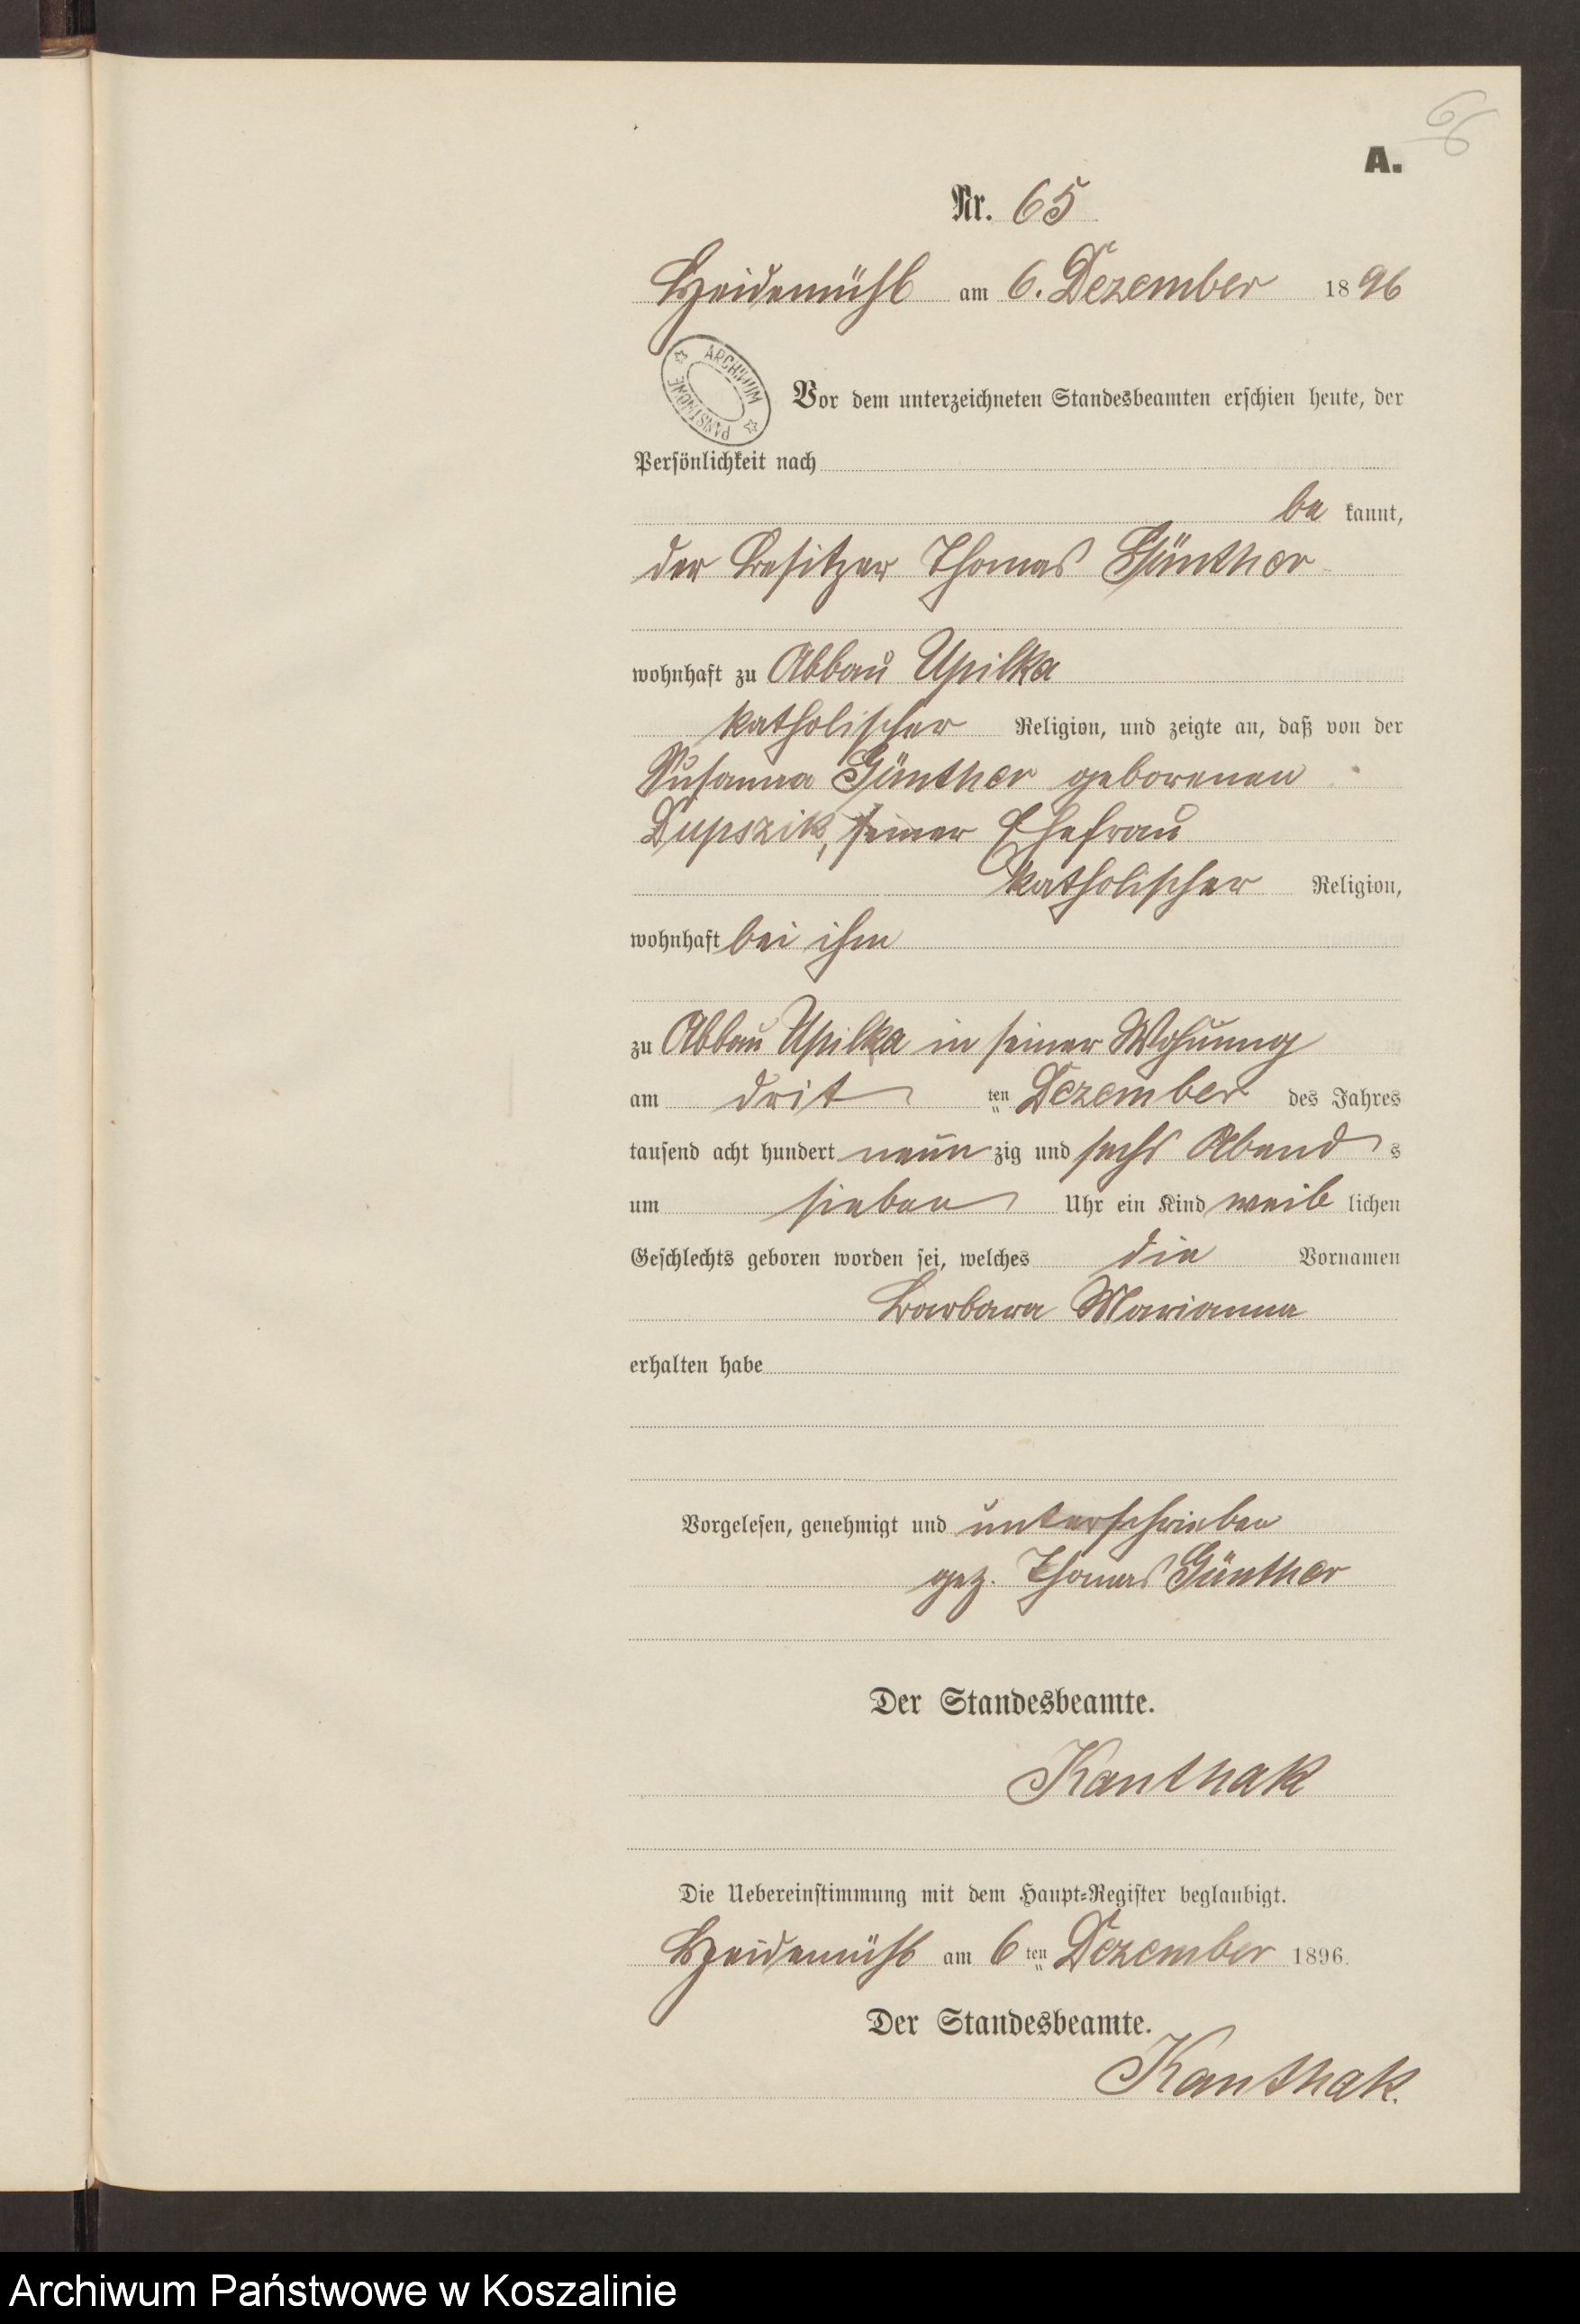 66
A.
Nr. 65
Heidemühl am 6. Dezember 1896
ARCHIWUM PAŃSTWOWE
Vor dem unterzeichneten Standesbeamten erschien heute, der
Persönlichkeit nach
be kannt,
der Besitzer Thomas Günther
wohnhaft zu Abbau Upilka
katholischer Religion, und zeigte an, daß von der
Susanna Günther geborenen
Dupszik, seiner Ehefrau
katholischer Religion,
wohnhaft bei ihm
zu Abbau Upilka in seiner Wohnung
am drit ten Dezember des Jahres
tausend acht hundert neun zig und sechs Abend s
um sieben Uhr ein Kind weib lichen
Geschlechts geboren worden sei, welches die Vornamen
Barbara Marianna
erhalten habe
Vorgelesen, genehmigt und unterschrieben
gez. Thomas Günther
Der Standesbeamte.
Kanthak
Die Uebereinstimmung mit dem Haupt-Register beglaubigt.
Heidemühl am 6 ten Dezember 1896.
Der Standesbeamte.
Kanthak.
Archiwum Państwowe w Koszalinie